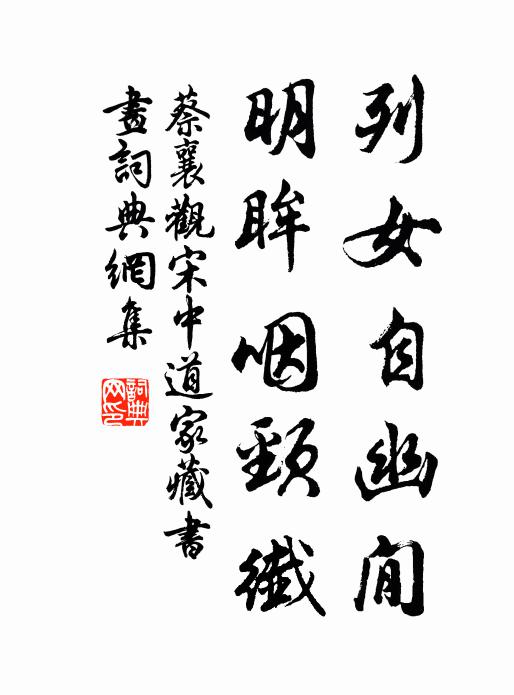 列女自幽閒
明眸咽頸纖
蔡襄觀宋中道家藏書
畫詞典網集
詞典
网印